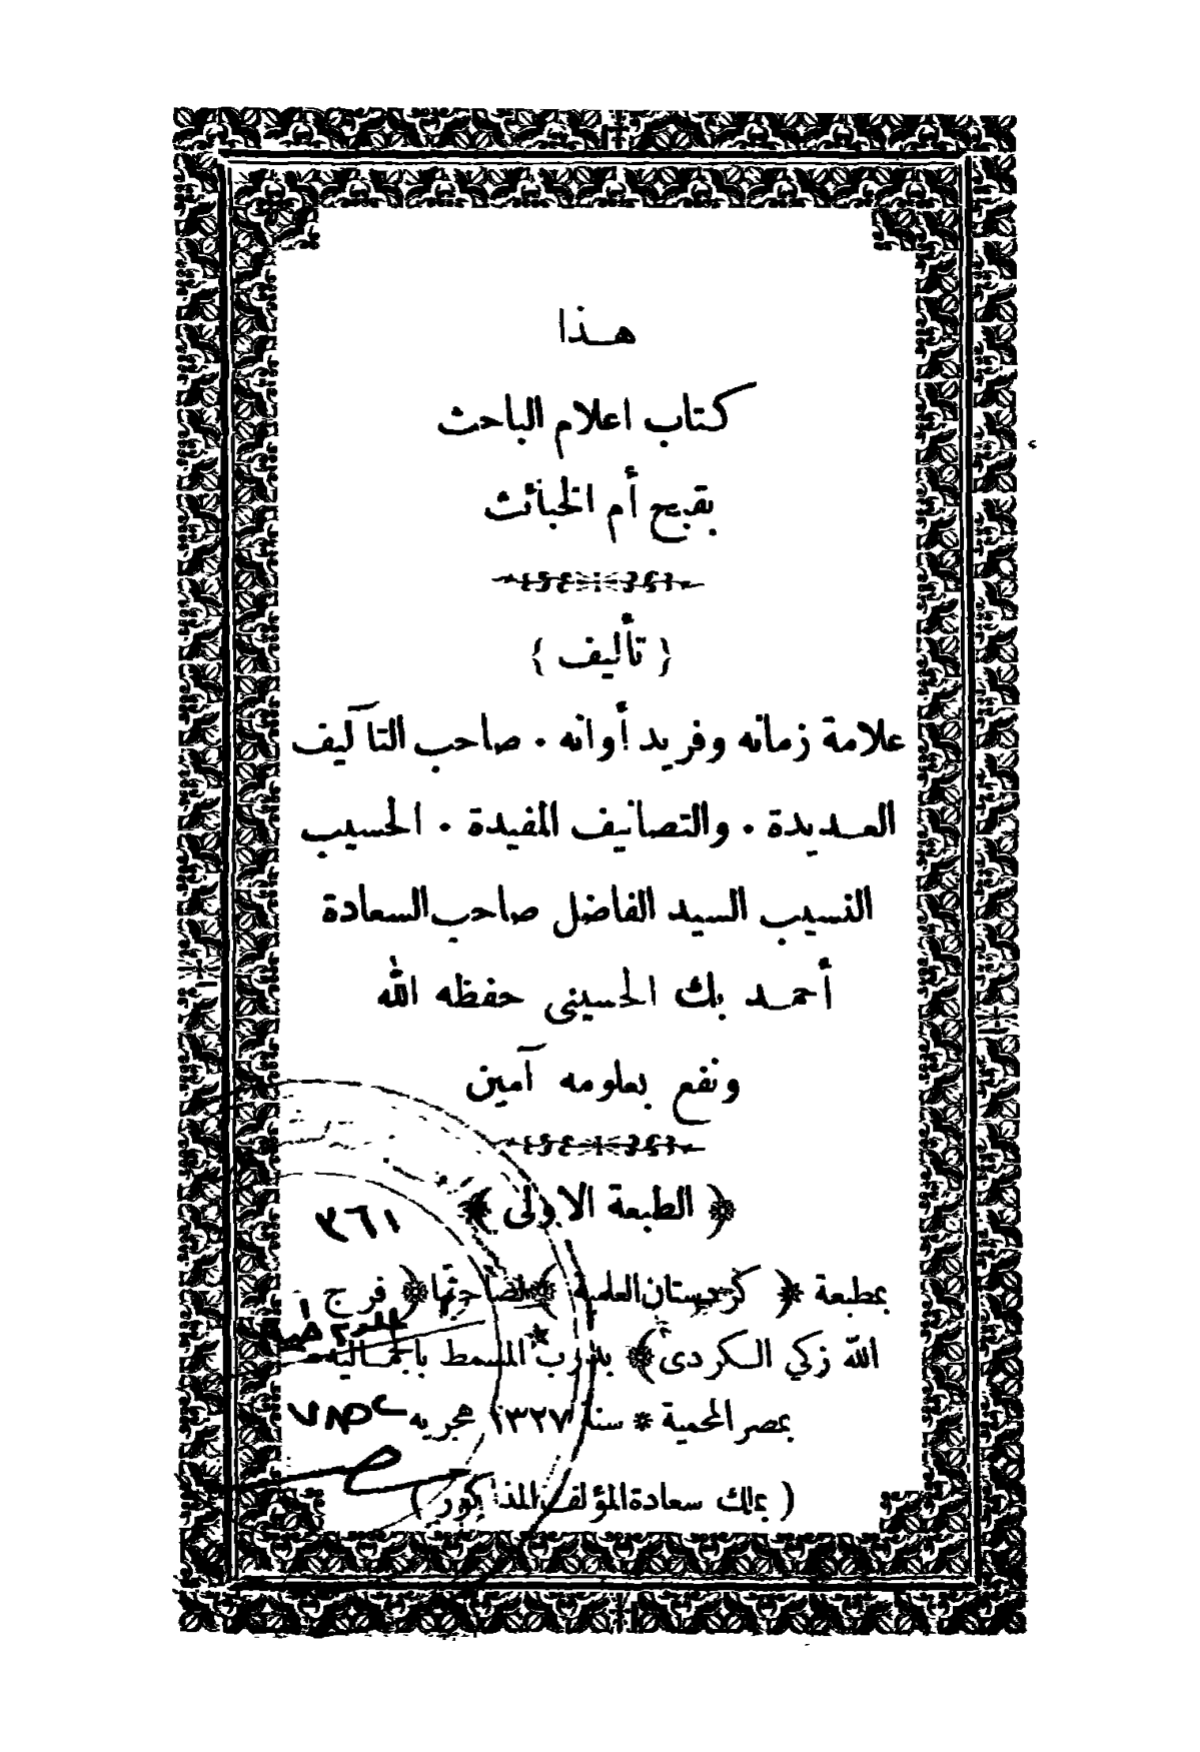 هذا
كتاب اعلام الباحث
بقبح أم الخبائث
{ تأليف }
علامة زمانه وفريد أوانه . صاحب التآليف
العديدة . والتصانيف المفيدة . الحسيب
النسيب السيد الفاضل صاحب السعادة
أحمد بك الحسينى حفظه الله
ونفع بعلومه آمين
﴿ الطبعة الاولى ﴾
٣٦١
بمطبعة ﴿ كردستان العلمية ﴾ لصاحبها ﴿ فرج
الله زكي الكردى ﴾ بدرب المسمط بالجمالية
بمصر المحمية * سنة ١٣٢٧ هجريه
( بملك سعادة المؤلف المذكور )